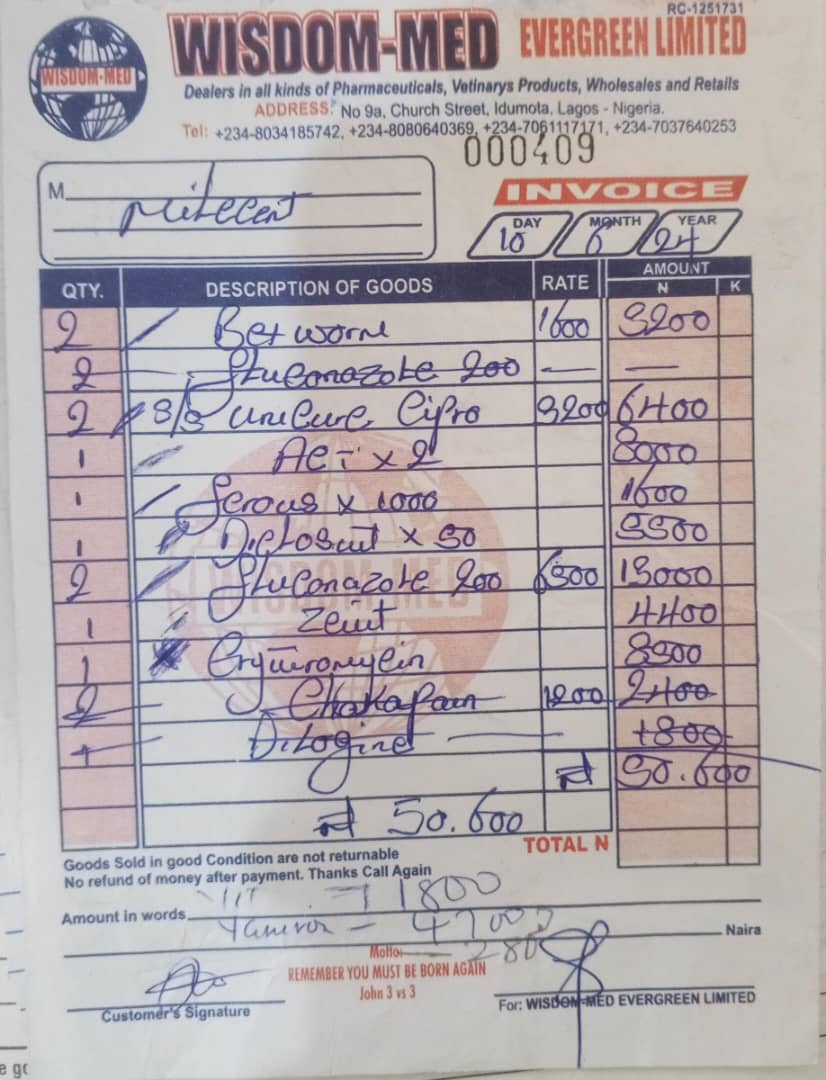 RC-1251731
WISDOM-MED EVERGREEN LIMITED
WISDOM-MED
Dealers in all kinds of Pharmaceuticals, Vetinarys Products, Wholesales and Retails
ADDRESS: No 9a, Church Street, Idumota, Lagos - Nigeria.
Tel: +234-8034185742, +234-8080640369, +234-7061117171, +234-7037640253
000409
M
INVOICE
DAY MONTH YEAR
10 6 24
QTY. DESCRIPTION OF GOODS RATE AMOUNT
N K
2 Bet worm 1600 3200
2 Fluconazole 200 — —
2 S/S Unicure Cipro 3200 6400
1 ACT x 2 8000
1 Ferous x 1000 1600
1 x 50
2 Fluconazole 200 6500 13000
1 4400
1
2 Chakapain 1200 2400
+800
₦ 50.600
₦ 50.600
TOTAL N
Goods Sold in good Condition are not returnable
No refund of money after payment. Thanks Call Again
1800
Amount in words
Naira
Motto:
REMEMBER YOU MUST BE BORN AGAIN
John 3 vs 3
Customer's Signature
For: WISDOM-MED EVERGREEN LIMITED